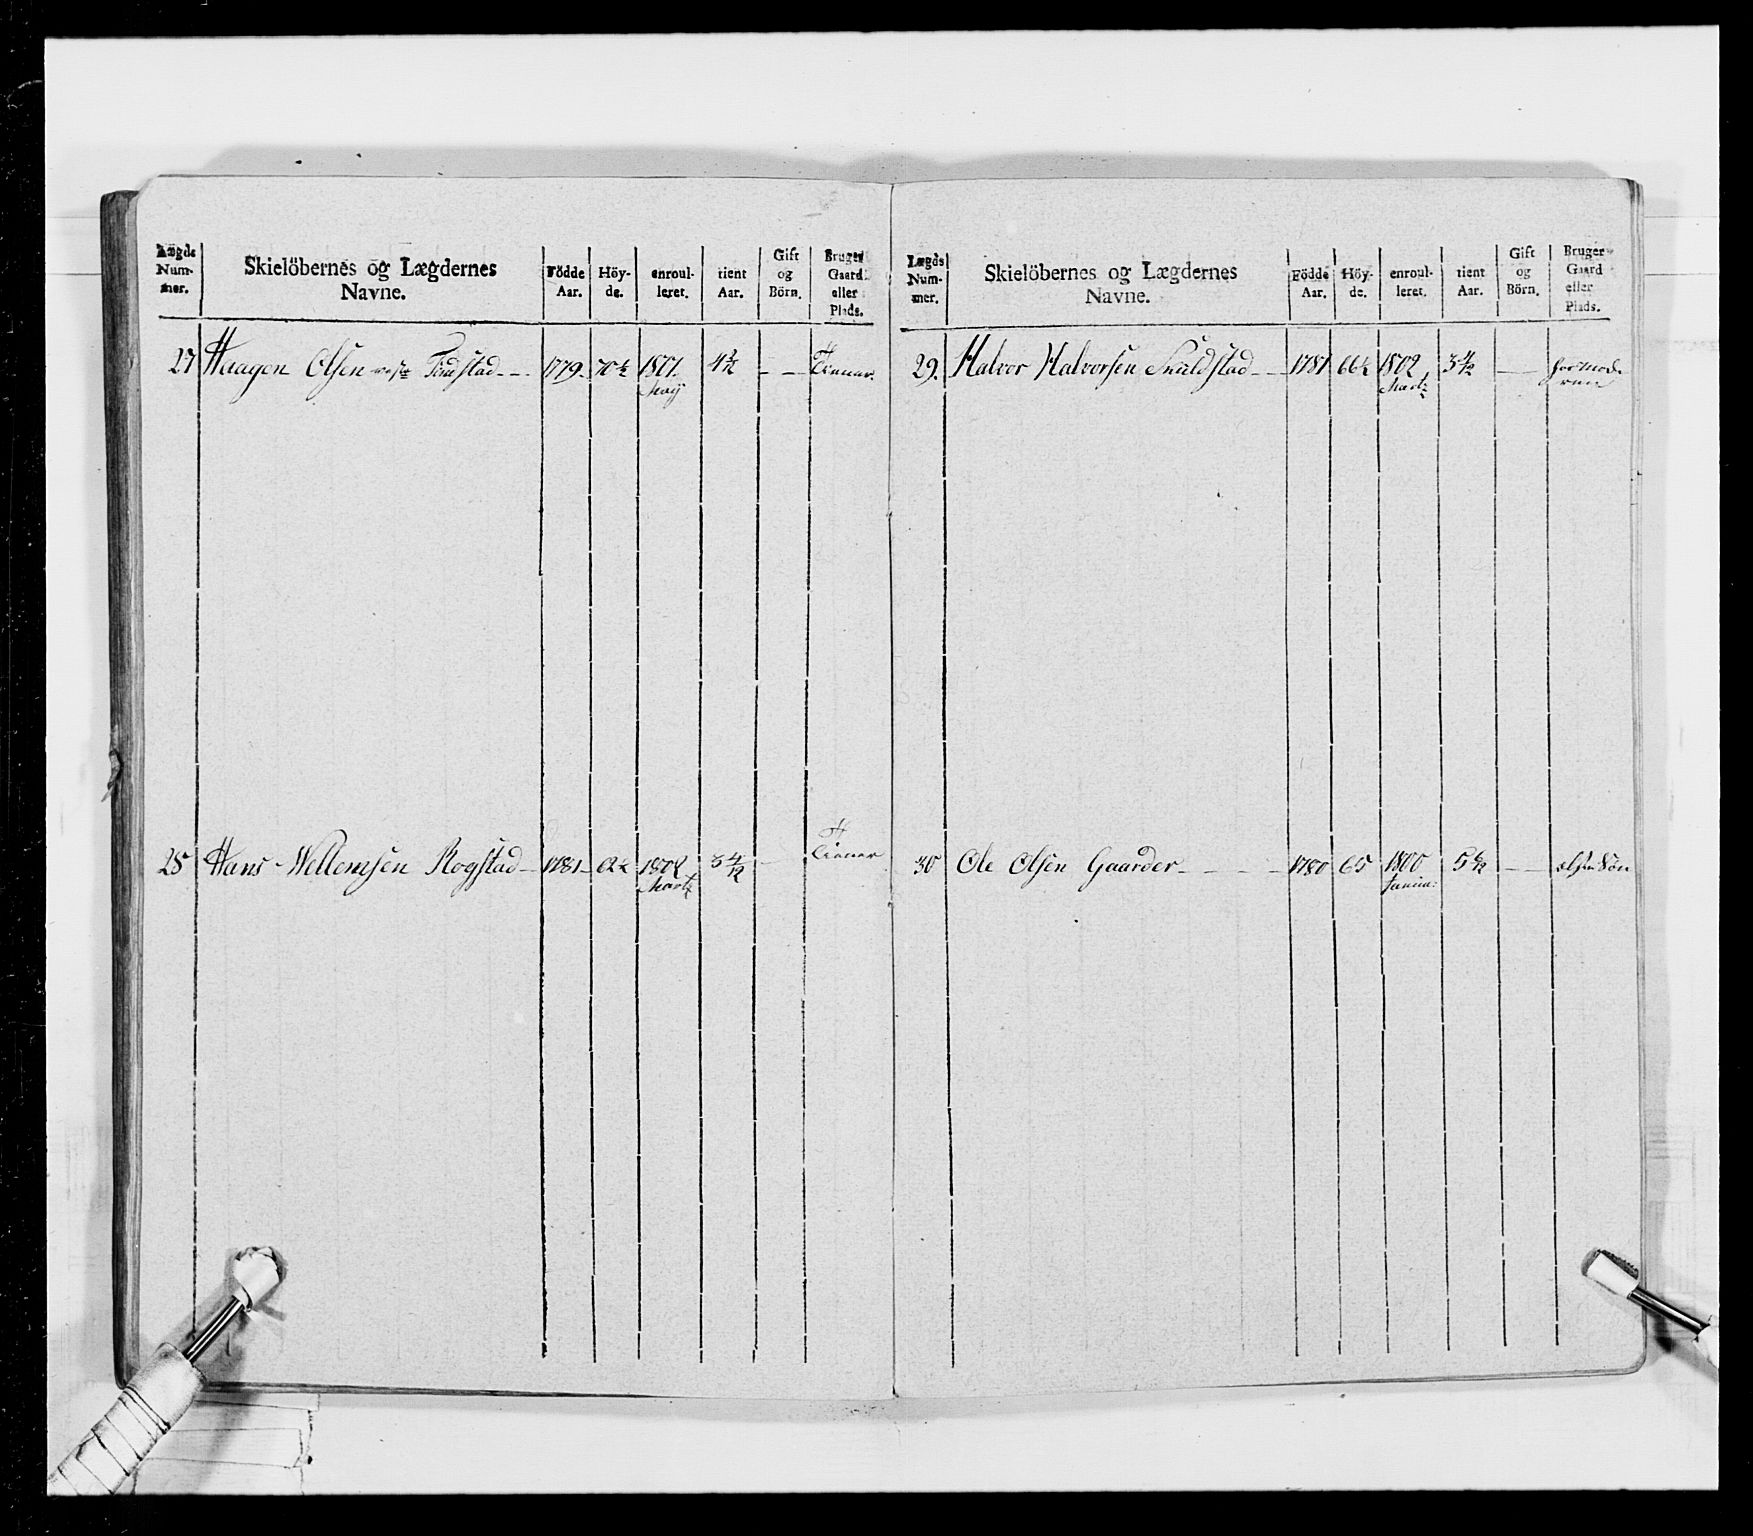 Lægds Num- mer.
Skielöbernes og Lægdernes
Navne.
Födde Aar.
Höy- de.
enroul- leret.
tient Aar.
Gift og Börn.
Bruger Gaard eller Plads.
27 Haagen Olsen Tiudstad - - 1779. 70½ 1801. - -
May
28 Hans Wellemsen Rogstad - 1781 - 1802 3 4/12 - Tiener
Martz
Lægds Num- mer.
Skielöbernes og Lægdernes
Navne.
Födde Aar.
Höy- de.
enroul- leret.
tient Aar.
Gift og Börn.
Bruger Gaard eller Plads.
29. Halvor Halvorsen Skuldstad - - 1781 66½ 1802 3 4/12
Martz
30 Ole Olsen Gaarder - - - - 1780 65 1800 5 6/12 - -
Janua: